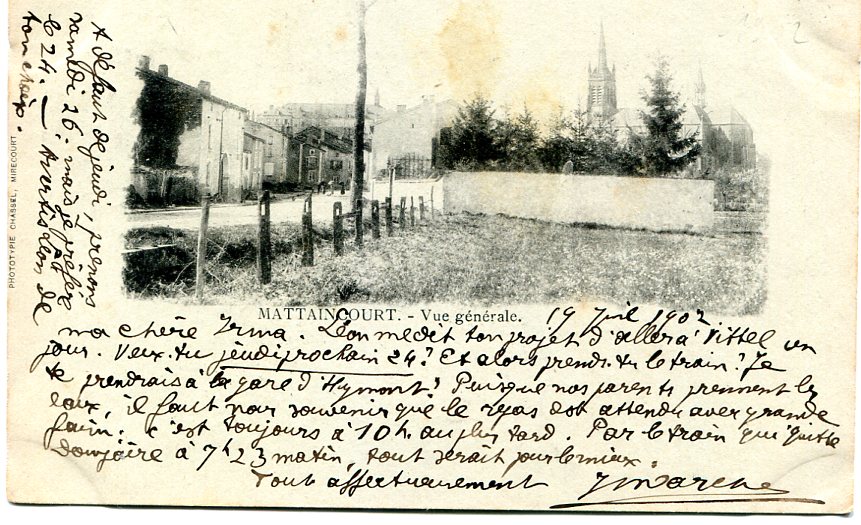 MATTAINCOURT. - Vue générale.
19 Juil 1902
ma chère Irma. Léon me dit ton projet d'aller à Vittel un
jour. Veux-tu jeudi prochain 24? Et alors prends-tu le train? Je
te prendrais à la gare d'Hymont? Puisque nos parents prennent les
eaux, il faut nous souvenir que le repas est attendu avec grande
faim. c'est toujours à 10h. au plus tard. Par le train qui quitte
à 7h23 matin, tout serait pour le mieux.
Tout affectueusement
A défaut de jeudi, prenons
samedi 26. mais je préfère
le 24. — Avertis Léon de
ton choix.
PHOTOTYPIE CHASSEL, MIRECOURT